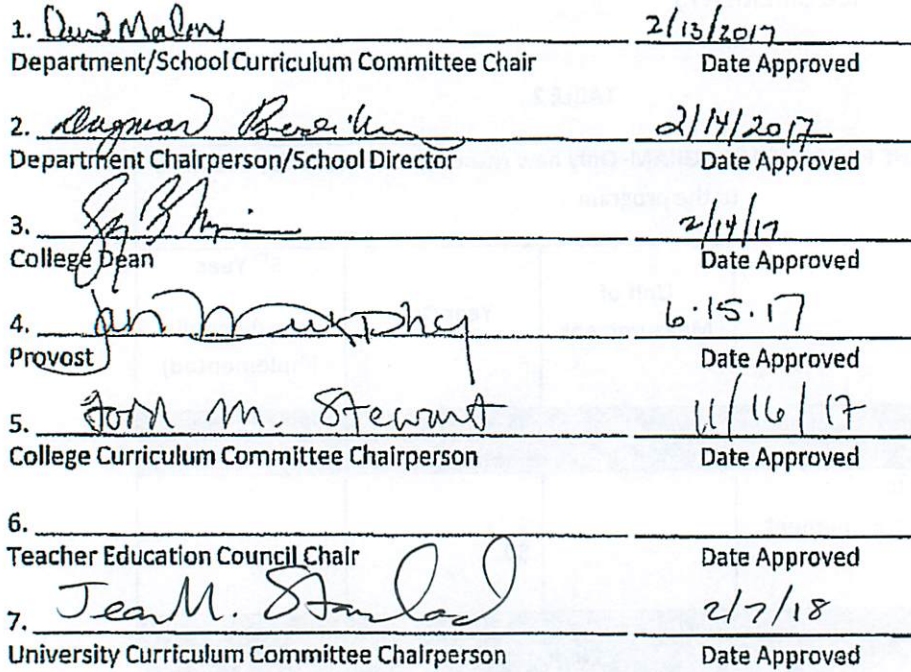 1. David Malone 2/13/2017
Department/School Curriculum Committee Chair Date Approved
2. Dagmar 2/14/2017
Department Chairperson/School Director Date Approved
3. 2/14/17
College Dean Date Approved
4. Jan Murphy 6.15.17
Provost Date Approved
5. M Stewart 11/16/17
College Curriculum Committee Chairperson Date Approved
6.
Teacher Education Council Chair Date Approved
7. Jean M. Standard 2/7/18
University Curriculum Committee Chairperson Date Approved